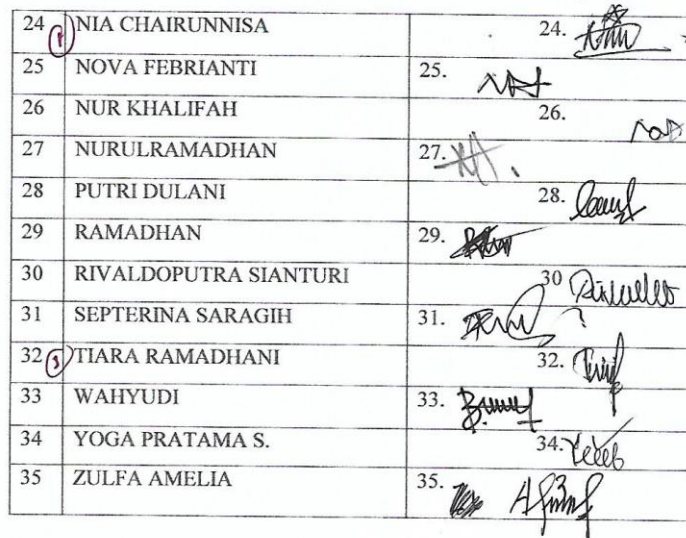 24 NIA CHAIRUNNISA 24.
25 NOVA FEBRIANTI 25.
26 NUR KHALIFAH 26.
27 NURULRAMADHAN 27.
28 PUTRI DULANI 28.
29 RAMADHAN 29.
30 RIVALDOPUTRA SIANTURI 30
31 SEPTERINA SARAGIH 31.
32 TIARA RAMADHANI 32.
33 WAHYUDI 33.
34 YOGA PRATAMA S. 34.
35 ZULFA AMELIA 35.